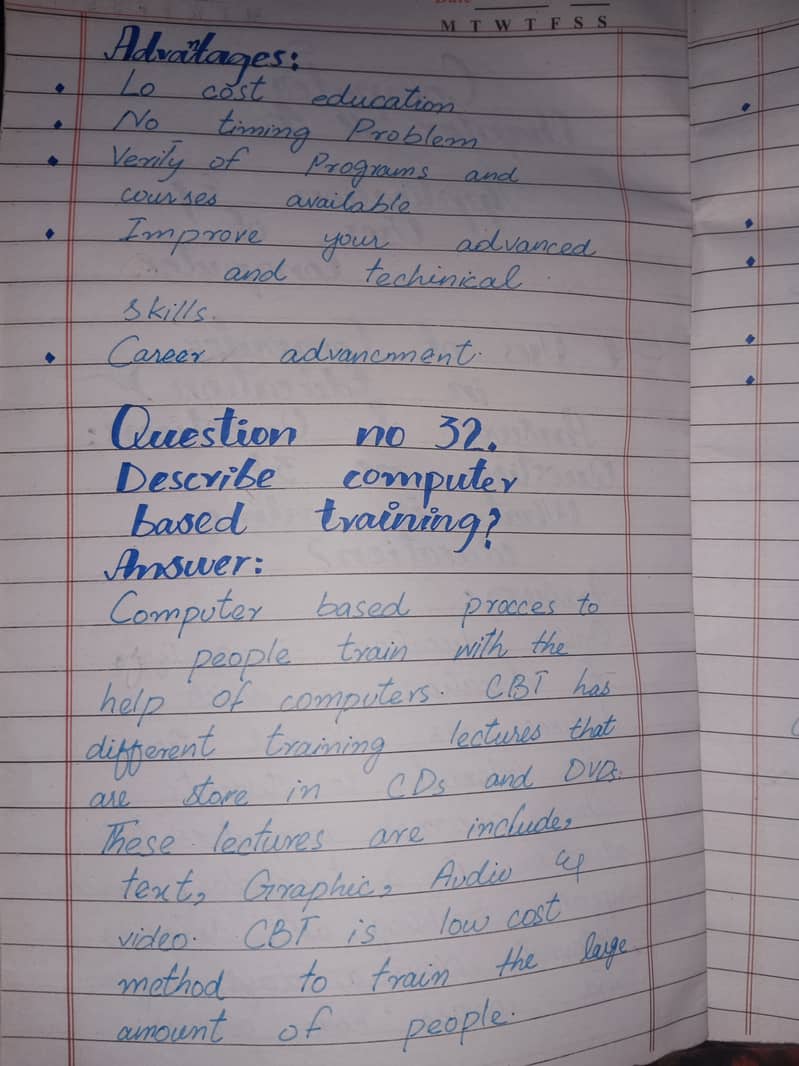 Date
M T W T F S S
Advantages:
Lo cost education
No timing Problem
Verity of Programs and
courses available
Improve your advanced
and techinical
skills.
Career advancmment.
Question no 32.
Describe computer
based training?
Answer:
Computer based procces to
people train with the
help of computers. CBT has
different training lectures that
are store in CDs and DVDs.
These lectures are include,
text, Graphic, Audio &
video. CBT is low cost
method to train the large
amount of people.